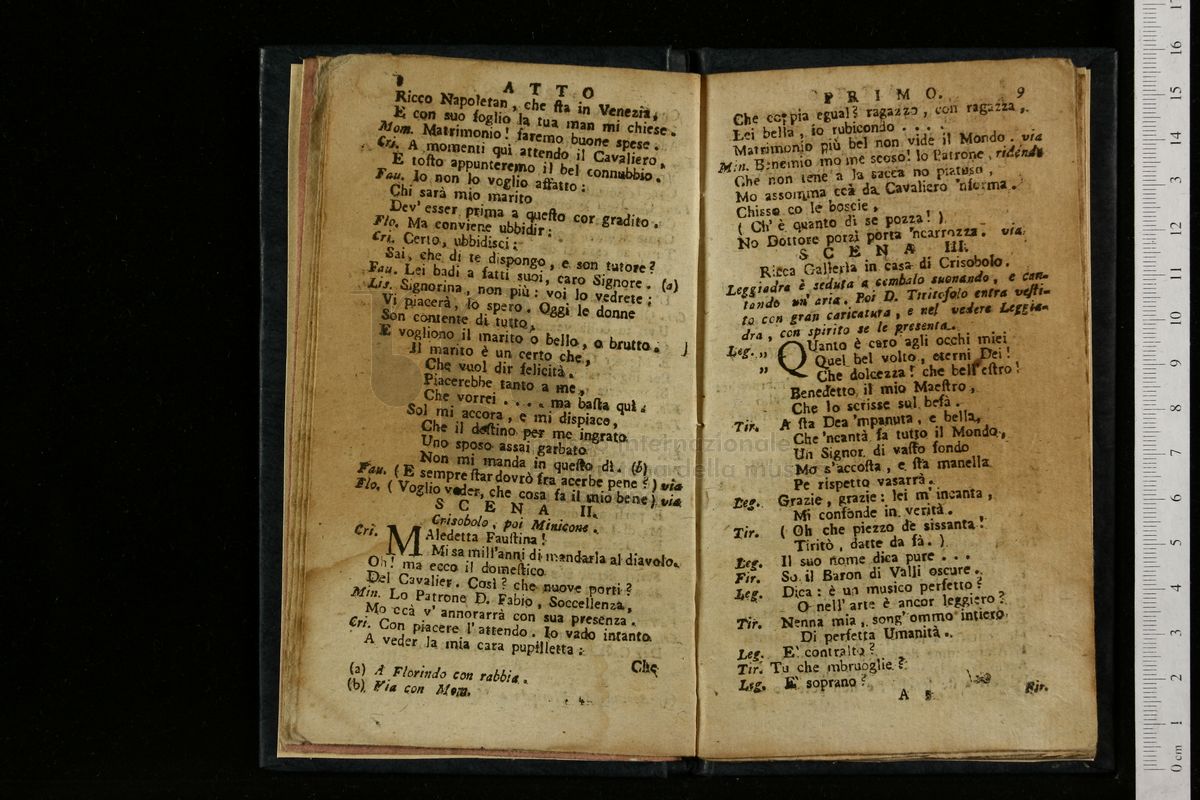 8 ATTO
Ricco Napoletan, che sta in Venezia,
E con suo foglio la tua man mi chiese.
Mom. Matrimonio! faremo buone spese.
Cri. A momenti qui attendo il Cavaliero,
E tosto appunteremo il bel connubbio.
Fau. Io non lo voglio affatto:
Chi sarà mio marito
Dev' esser prima a questo cor gradito.
Flo. Ma conviene ubbidir:
Cri. Certo, ubbidisci:
Sai, che di te dispongo, e son tutore?
Fau. Lei badi a fatti suoi, caro Signore. (a)
Lis. Signorina, non più: voi lo vedrete;
Vi piacerà, lo spero. Oggi le donne
Son contente di tutto,
E vogliono il marito o bello, o brutto.
Il marito è un certo che,
Che vuol dir felicità.
Piacerebbe tanto a me,
Che vorrei .... ma basta quì.
Sol mi accora, e mi dispiace,
Che il destino per me ingrato
Uno sposo assai garbato
Non mi manda in questo dì. (b)
Fau. (E sempre star dovrò fra acerbe pene?) via
Flo. (Voglio veder, che cosa fa il mio bene) via
SCENA II.
Crisobolo, poi Minicone.
Cri. MAledetta Faustina!
Mi sa mill'anni di mandarla al diavolo.
Oh! ma ecco il domestico
Del Cavalier. Così? che nuove porti?
Min. Lo Patrone D. Fabio, Soccellenza,
Mo ccà v' annorarrà con sua presenza.
Cri. Con piacere l'attendo. Io vado intanto
A veder la mia cara pupilletta:
Che
(a) A Florindo con rabbia.
(b) Via con Mom.
PRIMO. 9
Che coppia egual? ragazzo, con ragazza,
Lei bella, io rubicondo ....
Matrimonio più bel non vide il Mondo. via
Min. Benemio mo me scoso! lo Patrone, ridendo
Che non tene a la sacca no piatuso,
Mo assomma ccà da Cavaliero 'nforma.
Chisso co le boscie,
(Ch' è quanto di se pozza!)
No Dottore porzì porta 'ncarrozza. via
SCENA III.
Ricca Galleria in casa di Crisobolo.
Leggiadra è seduta a cembalo suonando, e can-
tando un' aria. Poi D. Tiritofolo entra vesti-
to con gran caricatura, e nel vedere Leggia-
dra, con spirito se le presenta.
Leg. „ QUanto è caro agli occhi miei
„ Quel bel volto, eterni Dei!
Che dolcezza! che bell'estro!
Benedetto il mio Maestro,
Che lo scrisse sul befà.
Tir. A sta Dea 'mpanuta, e bella,
Che 'ncantà fa tutto il Mondo,
Un Signor di vasto fondo
Mo s'accosta, e sta manella
Pe rispetto vasarrà.
Leg. Grazie, grazie: lei m' incanta,
Mi confonde in verità.
Tir. (Oh che piezzo de sissanta!
Tiritò, datte da fà.)
Leg. Il suo nome dica pure ...
Fir. So il Baron di Valli oscure.
Leg. Dica: è un musico perfetto?
O nell' arte è ancor leggiero?
Tir. Nenna mia, song' ommo intiero
Di perfetta Umanità.
Leg. E' contralto?
Tir. Tu che mbruoglie?
Leg. E' soprano?
A 5 Fir.